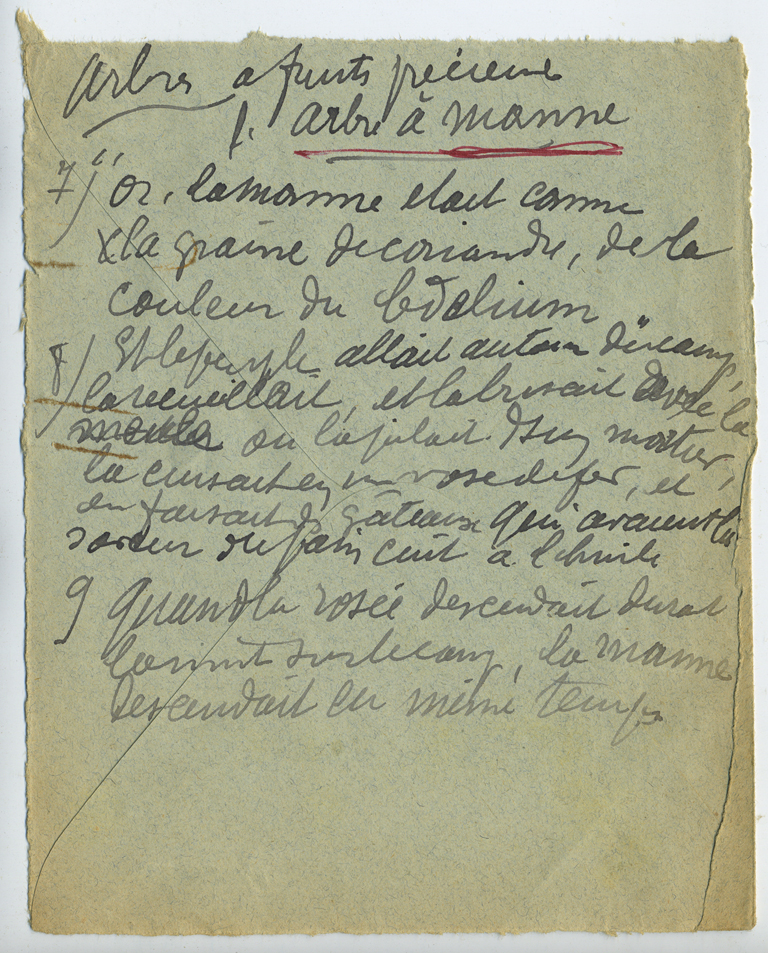 Arbres a fruits précieux
1. arbre à manne
7) " Or, la manne etait comme
x la graine de coriandre, de la
couleur du bdelium
8) Et le peuple allait autour du camp,
la recueillait, et la brisait avec la
meule ou la pilait ds un mortier,
la cuisait en un vase de fer, et
en faisait ds gâteaux qui avaient la
saveur du pain cuit a l'huile
9 Quand la rosée descendait durant
la nuit sur le camp, la manne
descendait en même temps